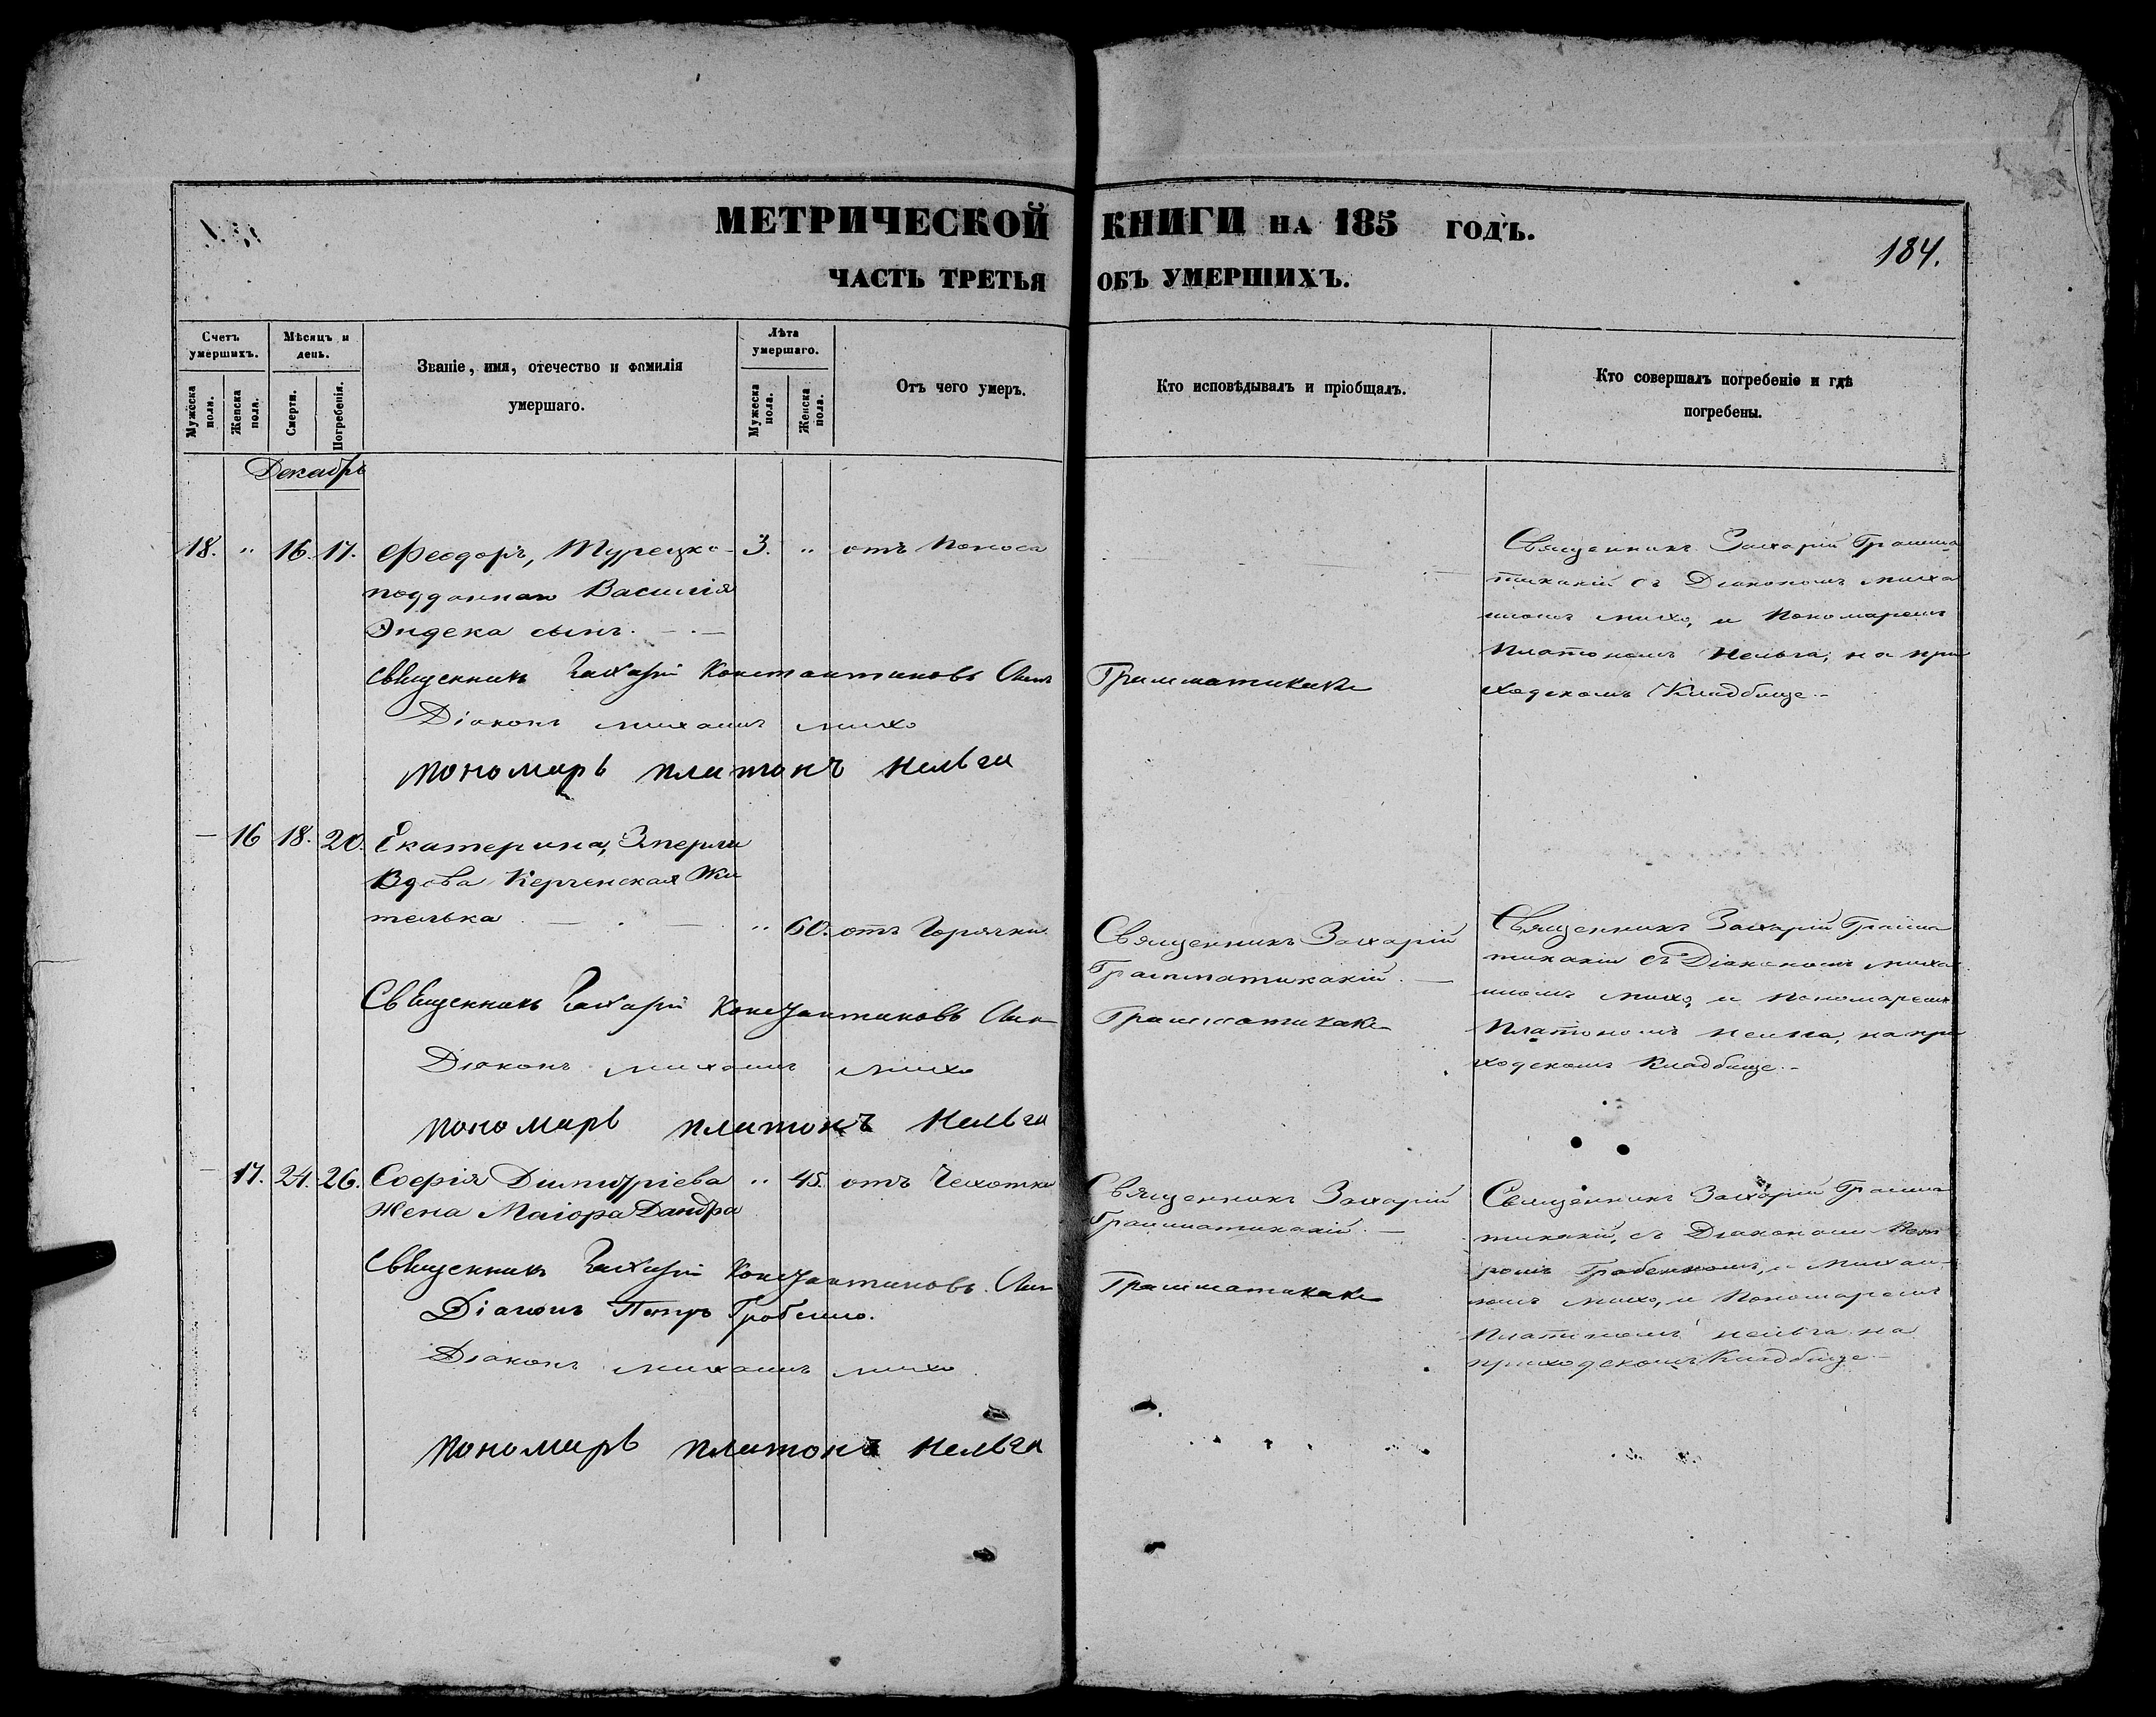 МЕТРИЧЕСКОЙ КНИГИ НА 185 ГОДЪ.
184.
ЧАСТЬ ТРЕТЬЯ ОБЪ УМЕРШИХЪ.
Счетъ умершихъ.
Мужеска пола.
Женска пола.
Мѣсяцъ и день.
Смерти.
Погребенія.
Званіе, имя, отечество и фамилія
умершаго.
Лѣта умершаго.
Мужеска пола.
Женска пола.
Отъ чего умеръ.
Кто исповѣдывалъ и пріобщалъ.
Кто совершалъ погребеніе и гдѣ
погребены.
Декабрь
18. " 16. 17. Феодоръ, Турецко- 3. " отъ Поноса
подданнаго Василія
Эндека сынъ.
Священникъ Захарій Грамма
тикакій съ Діакономъ Миха
иломъ Михо, и Пономаремъ
Платономъ Нельга, на при
ходскомъ Кладбище.-
Священникъ Захарій Константиновъ Грамматикаки
Діаконъ Михаилъ Михо
пономарь платонъ Нельга
- 16 18. 20. Екатерина,
Вдова Керченская Жи
телька " 60. отъ Горячки
Священникъ Захарій
Грамматикакій.
Священникъ Захарій Грамма
тикакій съ Діакономъ Миха
иломъ Михо, и Пономаремъ
Платономъ Нельга, на при
ходскомъ Кладбище.-
Священникъ Захарій Константиновъ Грамматикаки
Діаконъ Михаилъ Михо
пономарь платонъ Нельга
- 17. 24. 26. Софія Димитріева " 45. отъ Чехотки
Жена Маіора Дандра
Священникъ Захарій
Грамматикакій.
Священникъ Захарій Грамма
тикакій, съ Діакономъ Пет
ромъ Гробенкомъ, и Михаи-
ломъ Михо, и Пономаремъ
Платономъ Нельга на
приходскомъ Кладбище-
Священникъ Захарій Константиновъ Грамматикаки
Діаконъ Петръ
Діаконъ Михаилъ Михо
пономарь платонъ Нельга